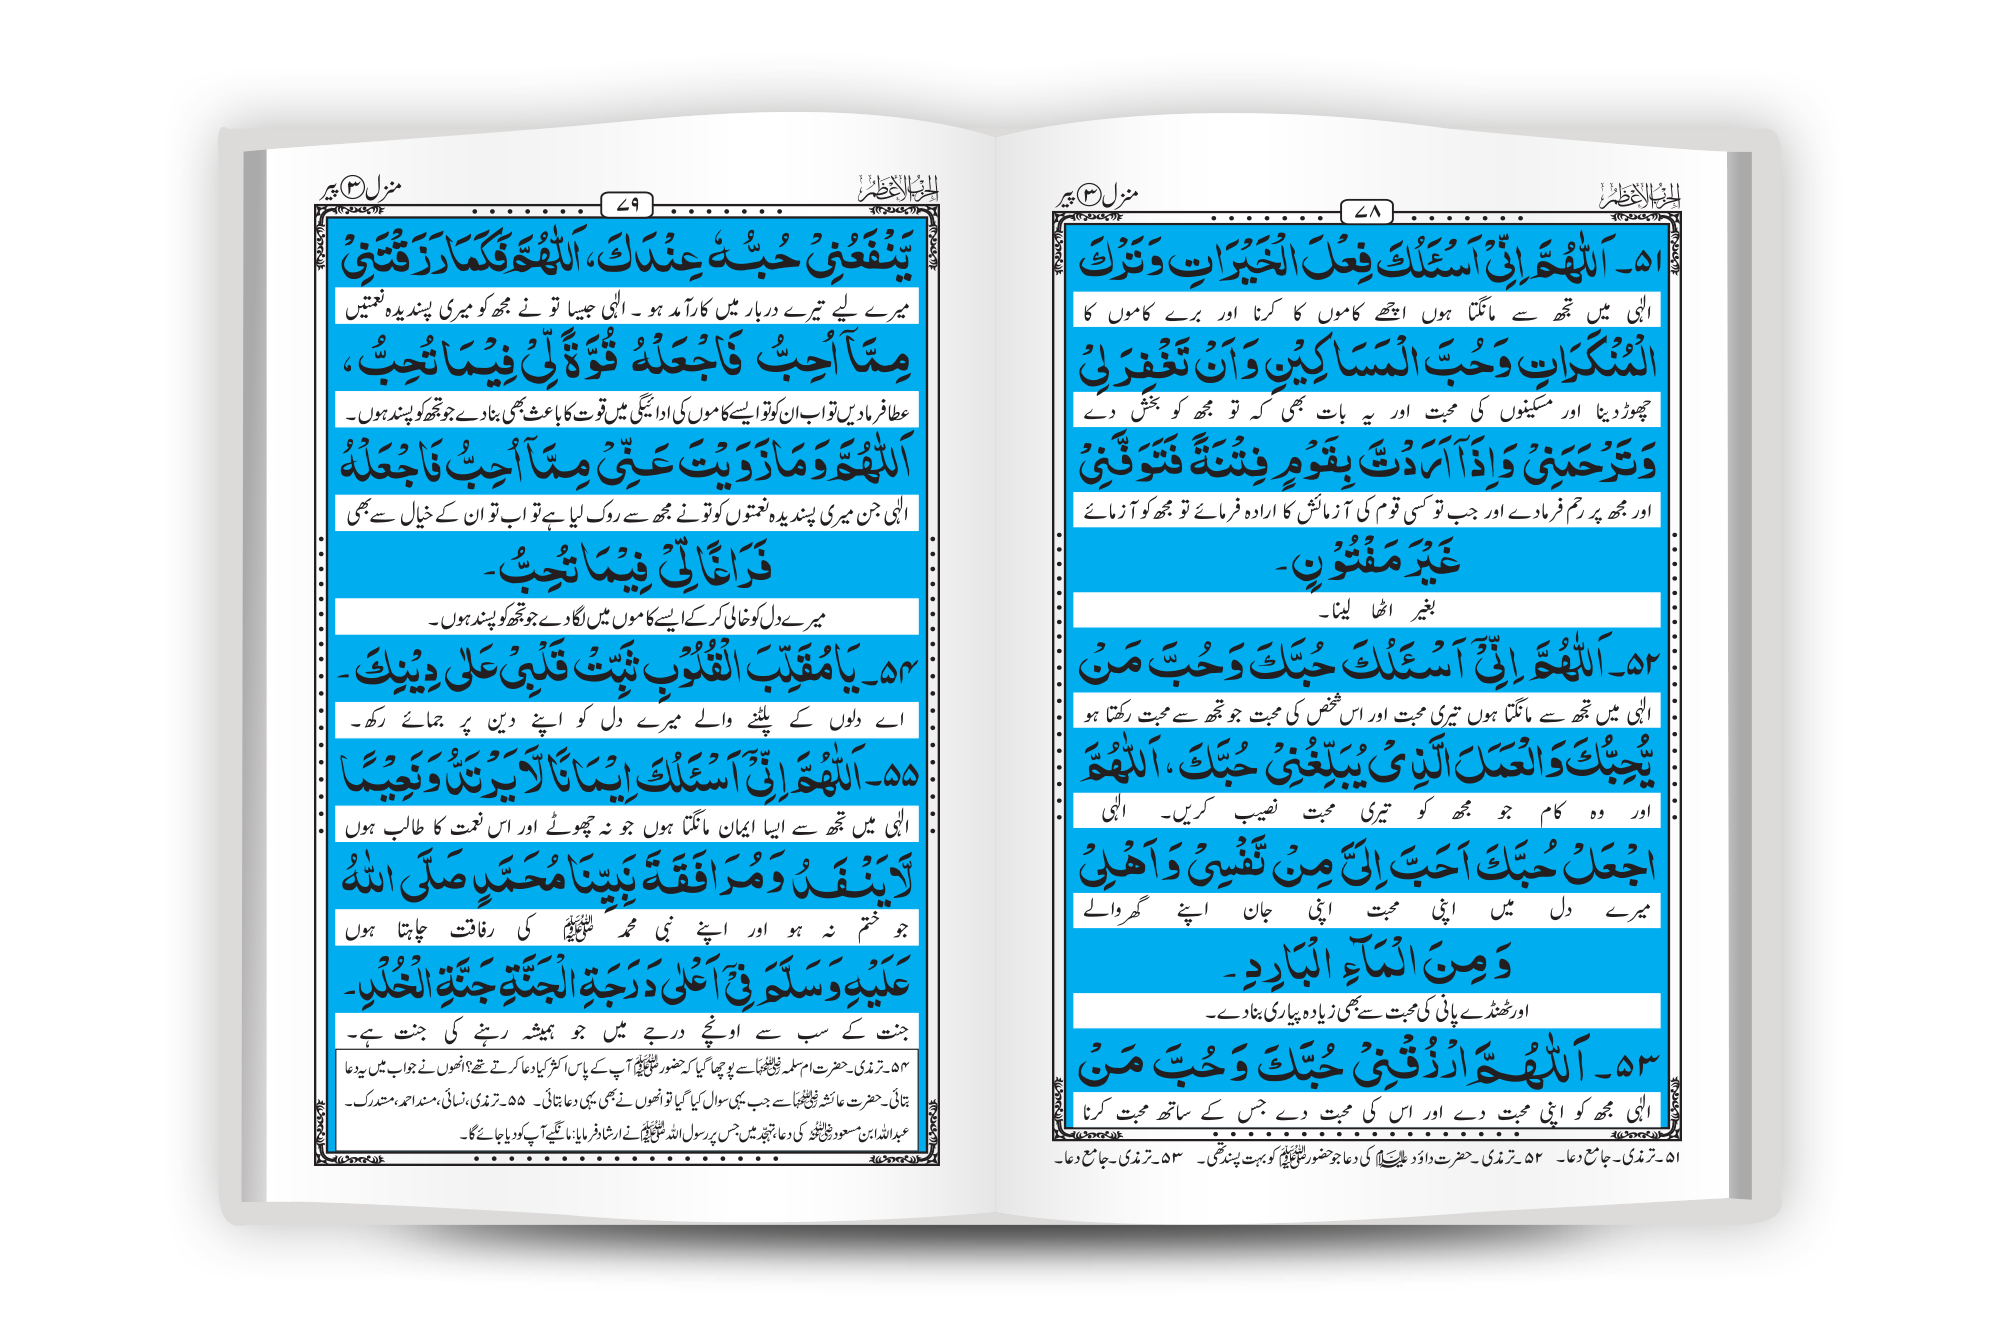 الحزب الاعظم
منزل ۳ پیر
۷۸
۵۱۔ اَللّٰهُمَّ اِنِّیْٓ اَسْئَلُكَ فِعْلَ الْخَیْرَاتِ وَتَرْكَ
الٰہی میں تجھ سے مانگتا ہوں اچھے کاموں کا کرنا اور برے کاموں کا
الْمُنْكَرَاتِ وَحُبَّ الْمَسَاكِیْنِ وَاَنْ تَغْفِرَ لِیْ
چھوڑ دینا اور مسکینوں کی محبت اور یہ بات بھی کہ تو مجھ کو بخش دے
وَتَرْحَمَنِیْ وَاِذَآ اَرَدْتَّ بِقَوْمٍ فِتْنَةً فَتَوَفَّنِیْ
اور مجھ پر رحم فرمادے اور جب تو کسی قوم کی آزمائش کا ارادہ فرمائے تو مجھ کو آزمائے
غَیْرَ مَفْتُوْنٍ۔
بغیر اٹھا لینا۔
۵۲۔ اَللّٰهُمَّ اِنِّیْٓ اَسْئَلُكَ حُبَّكَ وَحُبَّ مَنْ
الٰہی میں تجھ سے مانگتا ہوں تیری محبت اور اس شخص کی محبت جو تجھ سے محبت رکھتا ہو
یُّحِبُّكَ وَالْعَمَلَ الَّذِیْ یُبَلِّغُنِیْ حُبَّكَ، اَللّٰهُمَّ
اور وہ کام جو مجھ کو تیری محبت نصیب کریں۔ الٰہی
اجْعَلْ حُبَّكَ اَحَبَّ اِلَیَّ مِنْ نَّفْسِیْ وَاَهْلِیْ
میرے دل میں اپنی محبت اپنی جان اپنے گھر والے
وَمِنَ الْمَآءِ الْبَارِدِ۔
اور ٹھنڈے پانی کی محبت سے بھی زیادہ پیاری بنادے۔
۵۳۔ اَللّٰهُمَّ ارْزُقْنِیْ حُبَّكَ وَحُبَّ مَنْ
الٰہی مجھ کو اپنی محبت دے اور اس کی محبت دے جس کے ساتھ محبت کرنا
۵۱۔ ترمذی۔ جامع دعا۔ ۵۲۔ ترمذی۔ حضرت داؤد علیہ السلام کی دعا جو حضور ﷺ کو بہت پسند تھی۔ ۵۳۔ ترمذی۔ جامع دعا۔
الحزب الاعظم
منزل ۳ پیر
۷۹
یَّنْفَعُنِیْ حُبُّهٗ عِنْدَكَ، اَللّٰهُمَّ فَكَمَا رَزَقْتَنِیْ
میرے لیے تیرے دربار میں کارآمد ہو ۔ الٰہی جیسا تو نے مجھ کو میری پسندیدہ نعمتیں
مِمَّآ اُحِبُّ فَاجْعَلْهُ قُوَّةً لِّیْ فِیْمَا تُحِبُّ،
عطا فرمادیں تو اب ان کو تو ایسے کاموں کی ادائیگی میں قوت کا باعث بھی بنادے جو تجھ کو پسند ہوں۔
اَللّٰهُمَّ وَمَا زَوَیْتَ عَنِّیْ مِمَّآ اُحِبُّ فَاجْعَلْهُ
الٰہی جن میری پسندیدہ نعمتوں کو تو نے مجھ سے روک لیا ہے تو اب تو ان کے خیال سے بھی
فَرَاغًا لِّیْ فِیْمَا تُحِبُّ۔
میرے دل کو خالی کر کے ایسے کاموں میں لگادے جو تجھ کو پسند ہوں۔
۵۴۔ یَا مُقَلِّبَ الْقُلُوْبِ ثَبِّتْ قَلْبِیْ عَلٰی دِیْنِكَ۔
اے دلوں کے پلٹنے والے میرے دل کو اپنے دین پر جمائے رکھ۔
۵۵۔ اَللّٰهُمَّ اِنِّیْٓ اَسْئَلُكَ اِیْمَانًا لَّا یَرْتَدُّ وَنَعِیْمًا
الٰہی میں تجھ سے ایسا ایمان مانگتا ہوں جو نہ چھوٹے اور اس نعمت کا طالب ہوں
لَّا یَنْفَدُ وَمُرَافَقَةَ نَبِیِّنَا مُحَمَّدٍ صَلَّی اللّٰهُ
جو ختم نہ ہو اور اپنے نبی محمد ﷺ کی رفاقت چاہتا ہوں
عَلَیْهِ وَسَلَّمَ فِیْٓ اَعْلٰی دَرَجَةِ الْجَنَّةِ جَنَّةِ الْخُلْدِ۔
جنت کے سب سے اونچے درجے میں جو ہمیشہ رہنے کی جنت ہے۔
۵۴۔ ترمذی۔ حضرت ام سلمہ رضی اللہ عنہا سے پوچھا گیا کہ حضور ﷺ آپ کے پاس اکثر کیا دعا کرتے تھے؟ انھوں نے جواب میں یہ دعا
بتائی۔ حضرت عائشہ رضی اللہ عنہا سے جب یہی سوال کیا گیا تو انھوں نے بھی یہی دعا بتائی۔ ۵۵۔ ترمذی، نسائی، مسند احمد، مستدرک۔
عبداللہ ابن مسعود رضی اللہ عنہ کی دعا، تہجد میں جس پر رسول اللہ ﷺ نے ارشاد فرمایا: مانگیے آپ کو دیا جائے گا۔